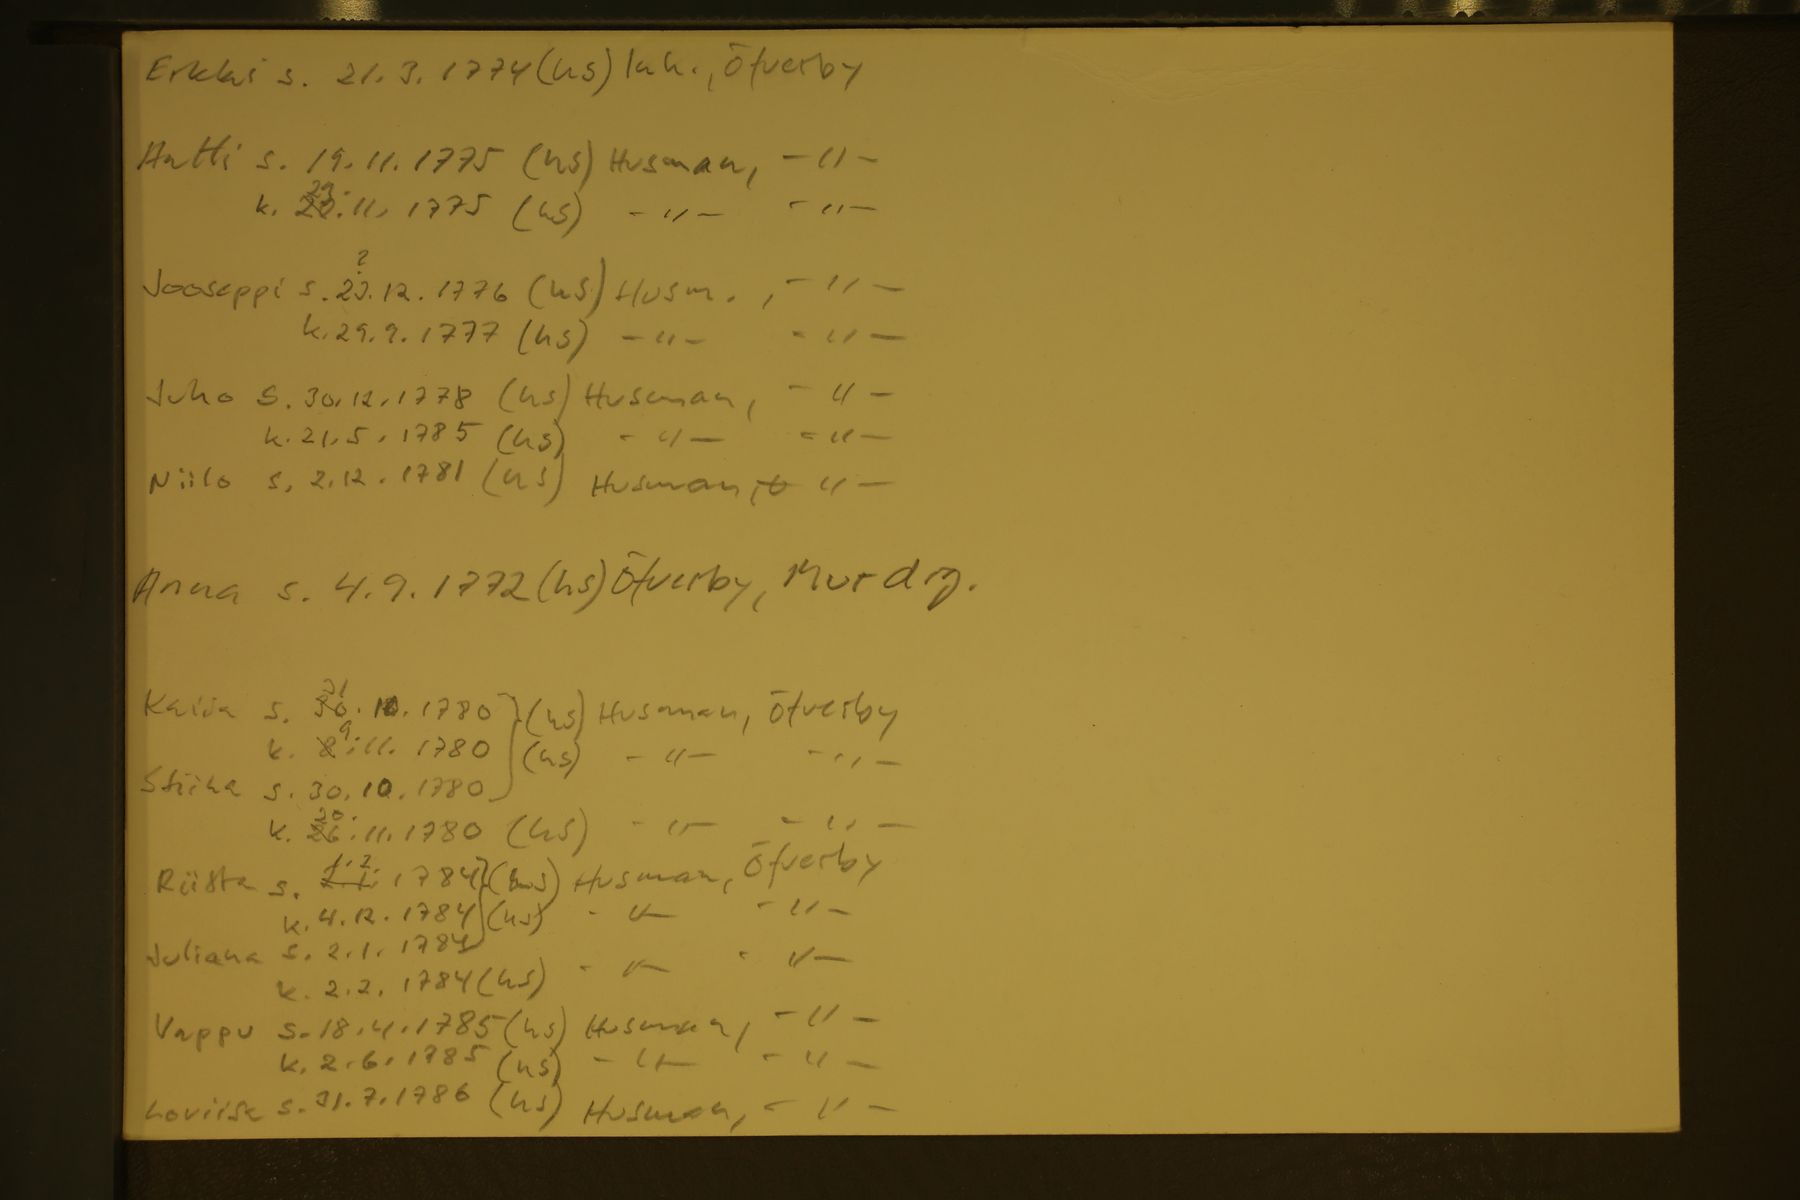 Erkki s. 21.3.1774 (hs) Inh., Öfverby
Antti s. 19.11.1775 (hs) Husman, -"-
k. 23.11.1775 (hs) -"- -"-
Jooseppi s. 23.12.1776 (hs) Husm., -"-
k. 29.9.1777 (hs) -"- -"-
Juho s. 30.12.1778 (hs) Husman, -"-
k. 21.5.1785 (hs) -"- -"-
Niilo s. 2.12.1781 (hs) Husman, -"-
Anna s. 4.9.1772 (hs) Öfverby,
Kaisa s. 31.10.1780 (hs) Husman, Öfverby
k. 9.11.1780 (hs) -"- -"-
Stiina s. 30.10.1780
k. 20.11.1780 (hs) -"- -"-
Riitta s. 1.2.1784 (hs) Husman, Öfverby
k. 4.12.1784 (hs) -"- -"-
Juliana s. 2.1.1784
k. 2.2.1784 (hs) -"- -"-
Vappu s. 18.4.1785 (hs) Husman, -"-
k. 2.6.1785 (hs) -"- -"-
Loviisa s. 31.7.1786 (hs) Husman, -"-